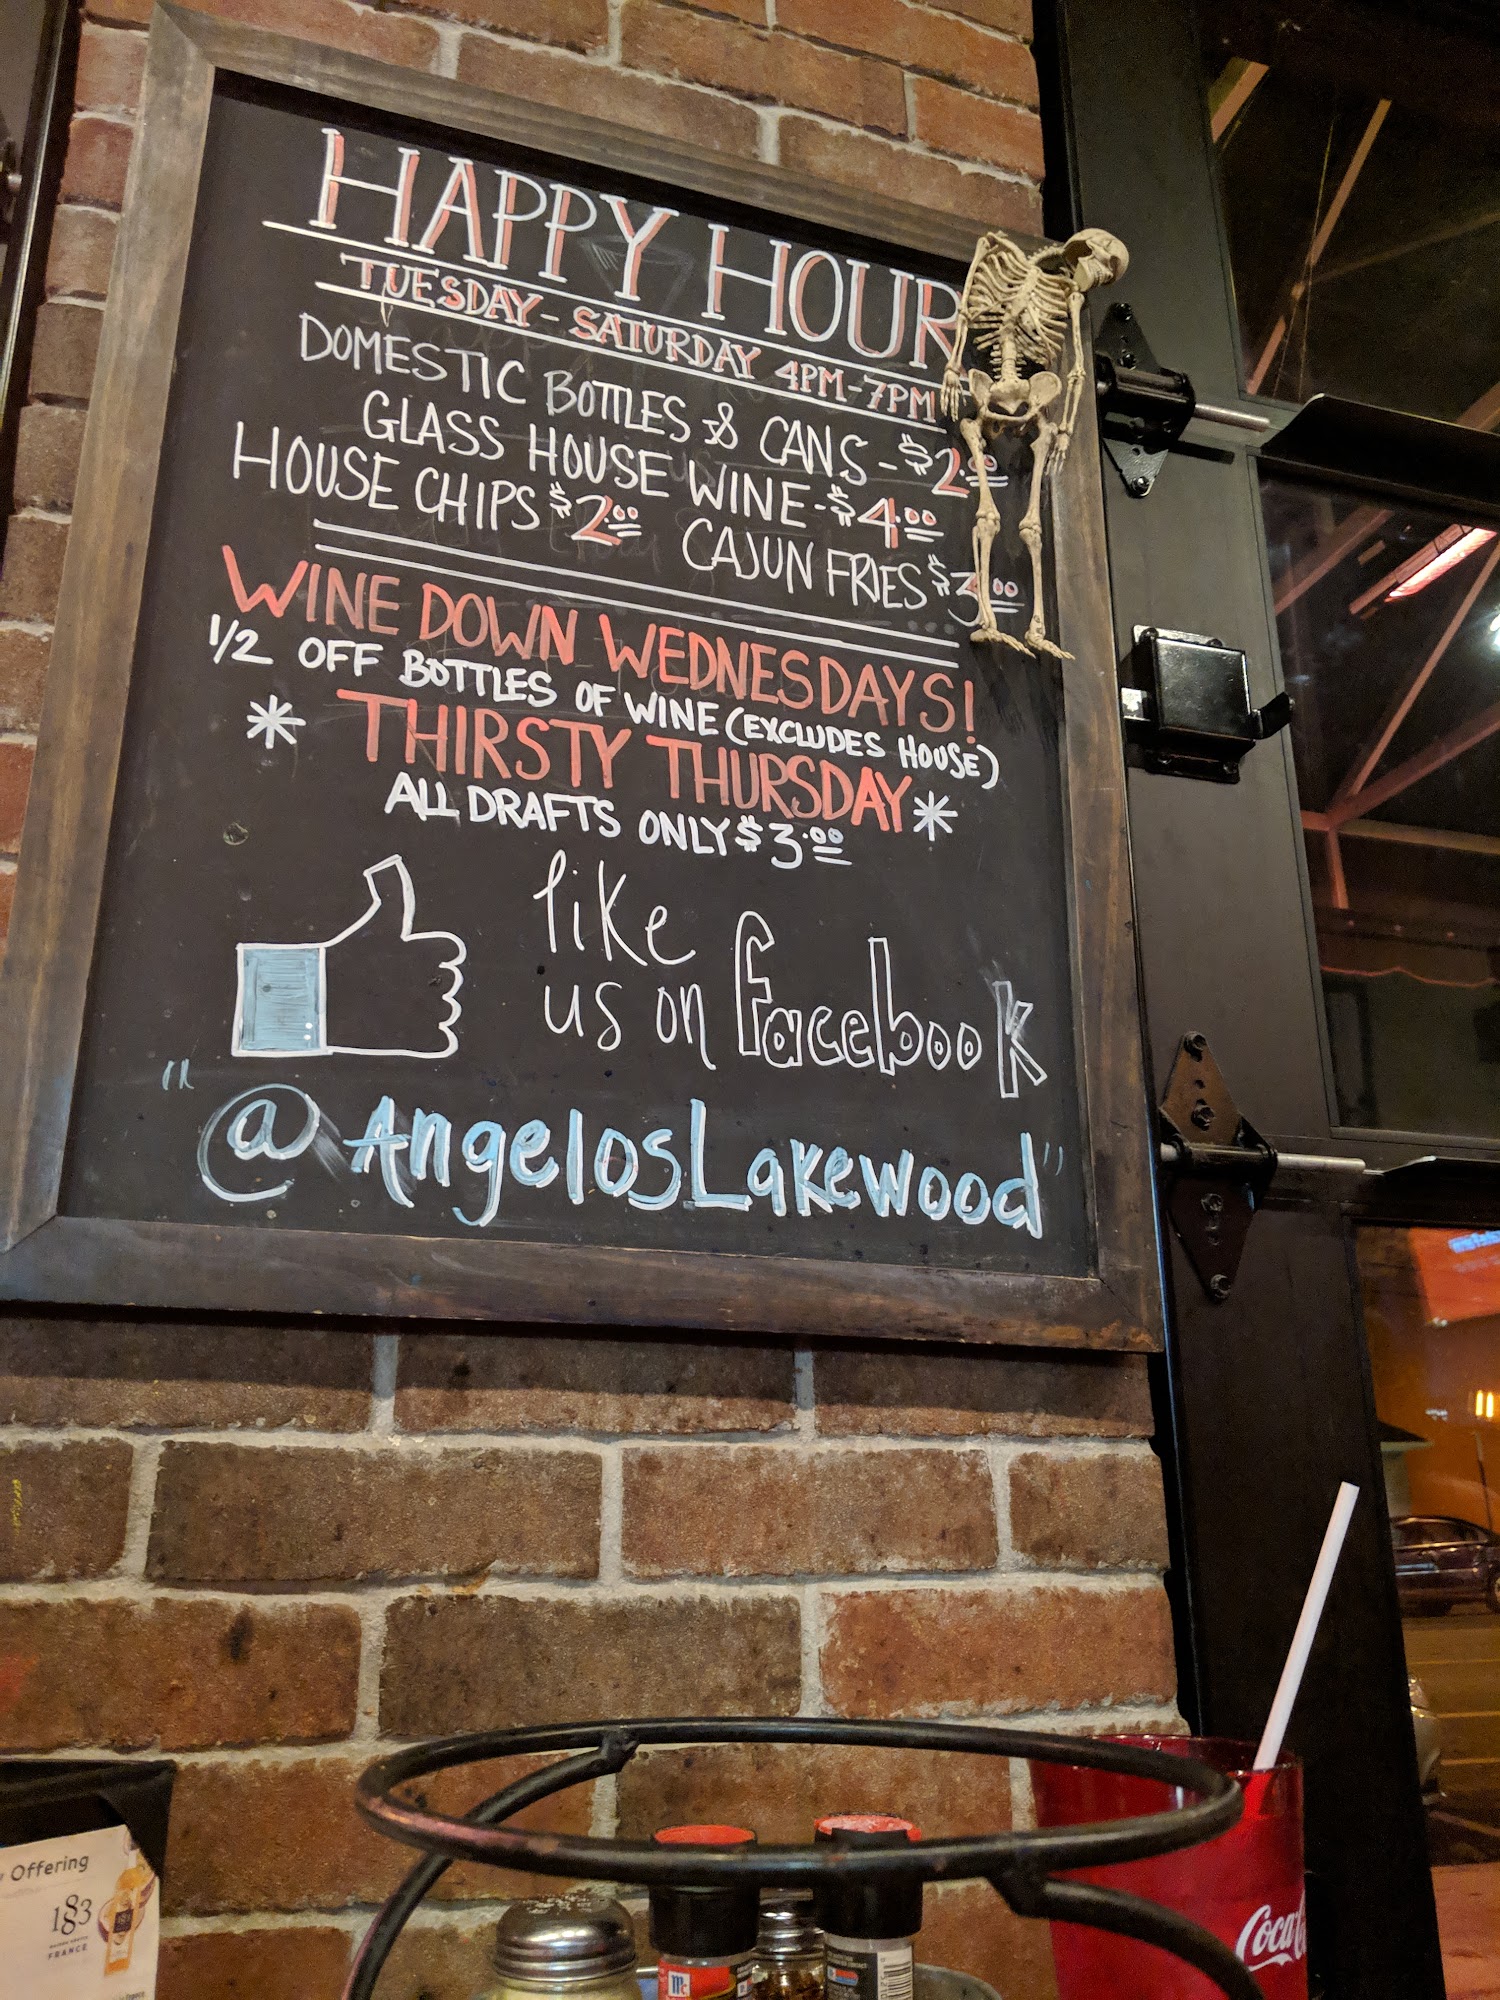 HAPPY HOUR
TUESDAY - SATURDAY 4PM-7PM
DOMESTIC BOTTLES & CANS - $2.00
GLASS HOUSE WINE - $4.00
HOUSE CHIPS $2.00 CAJUN FRIES $3.00
WINE DOWN WEDNESDAYS!
1/2 OFF BOTTLES OF WINE (EXCLUDES HOUSE)
* THIRSTY THURSDAY *
ALL DRAFTS ONLY $3.00
like
us on facebook
"@AngelosLakewood"
Offering
1883
FRANCE
Mc
Coca